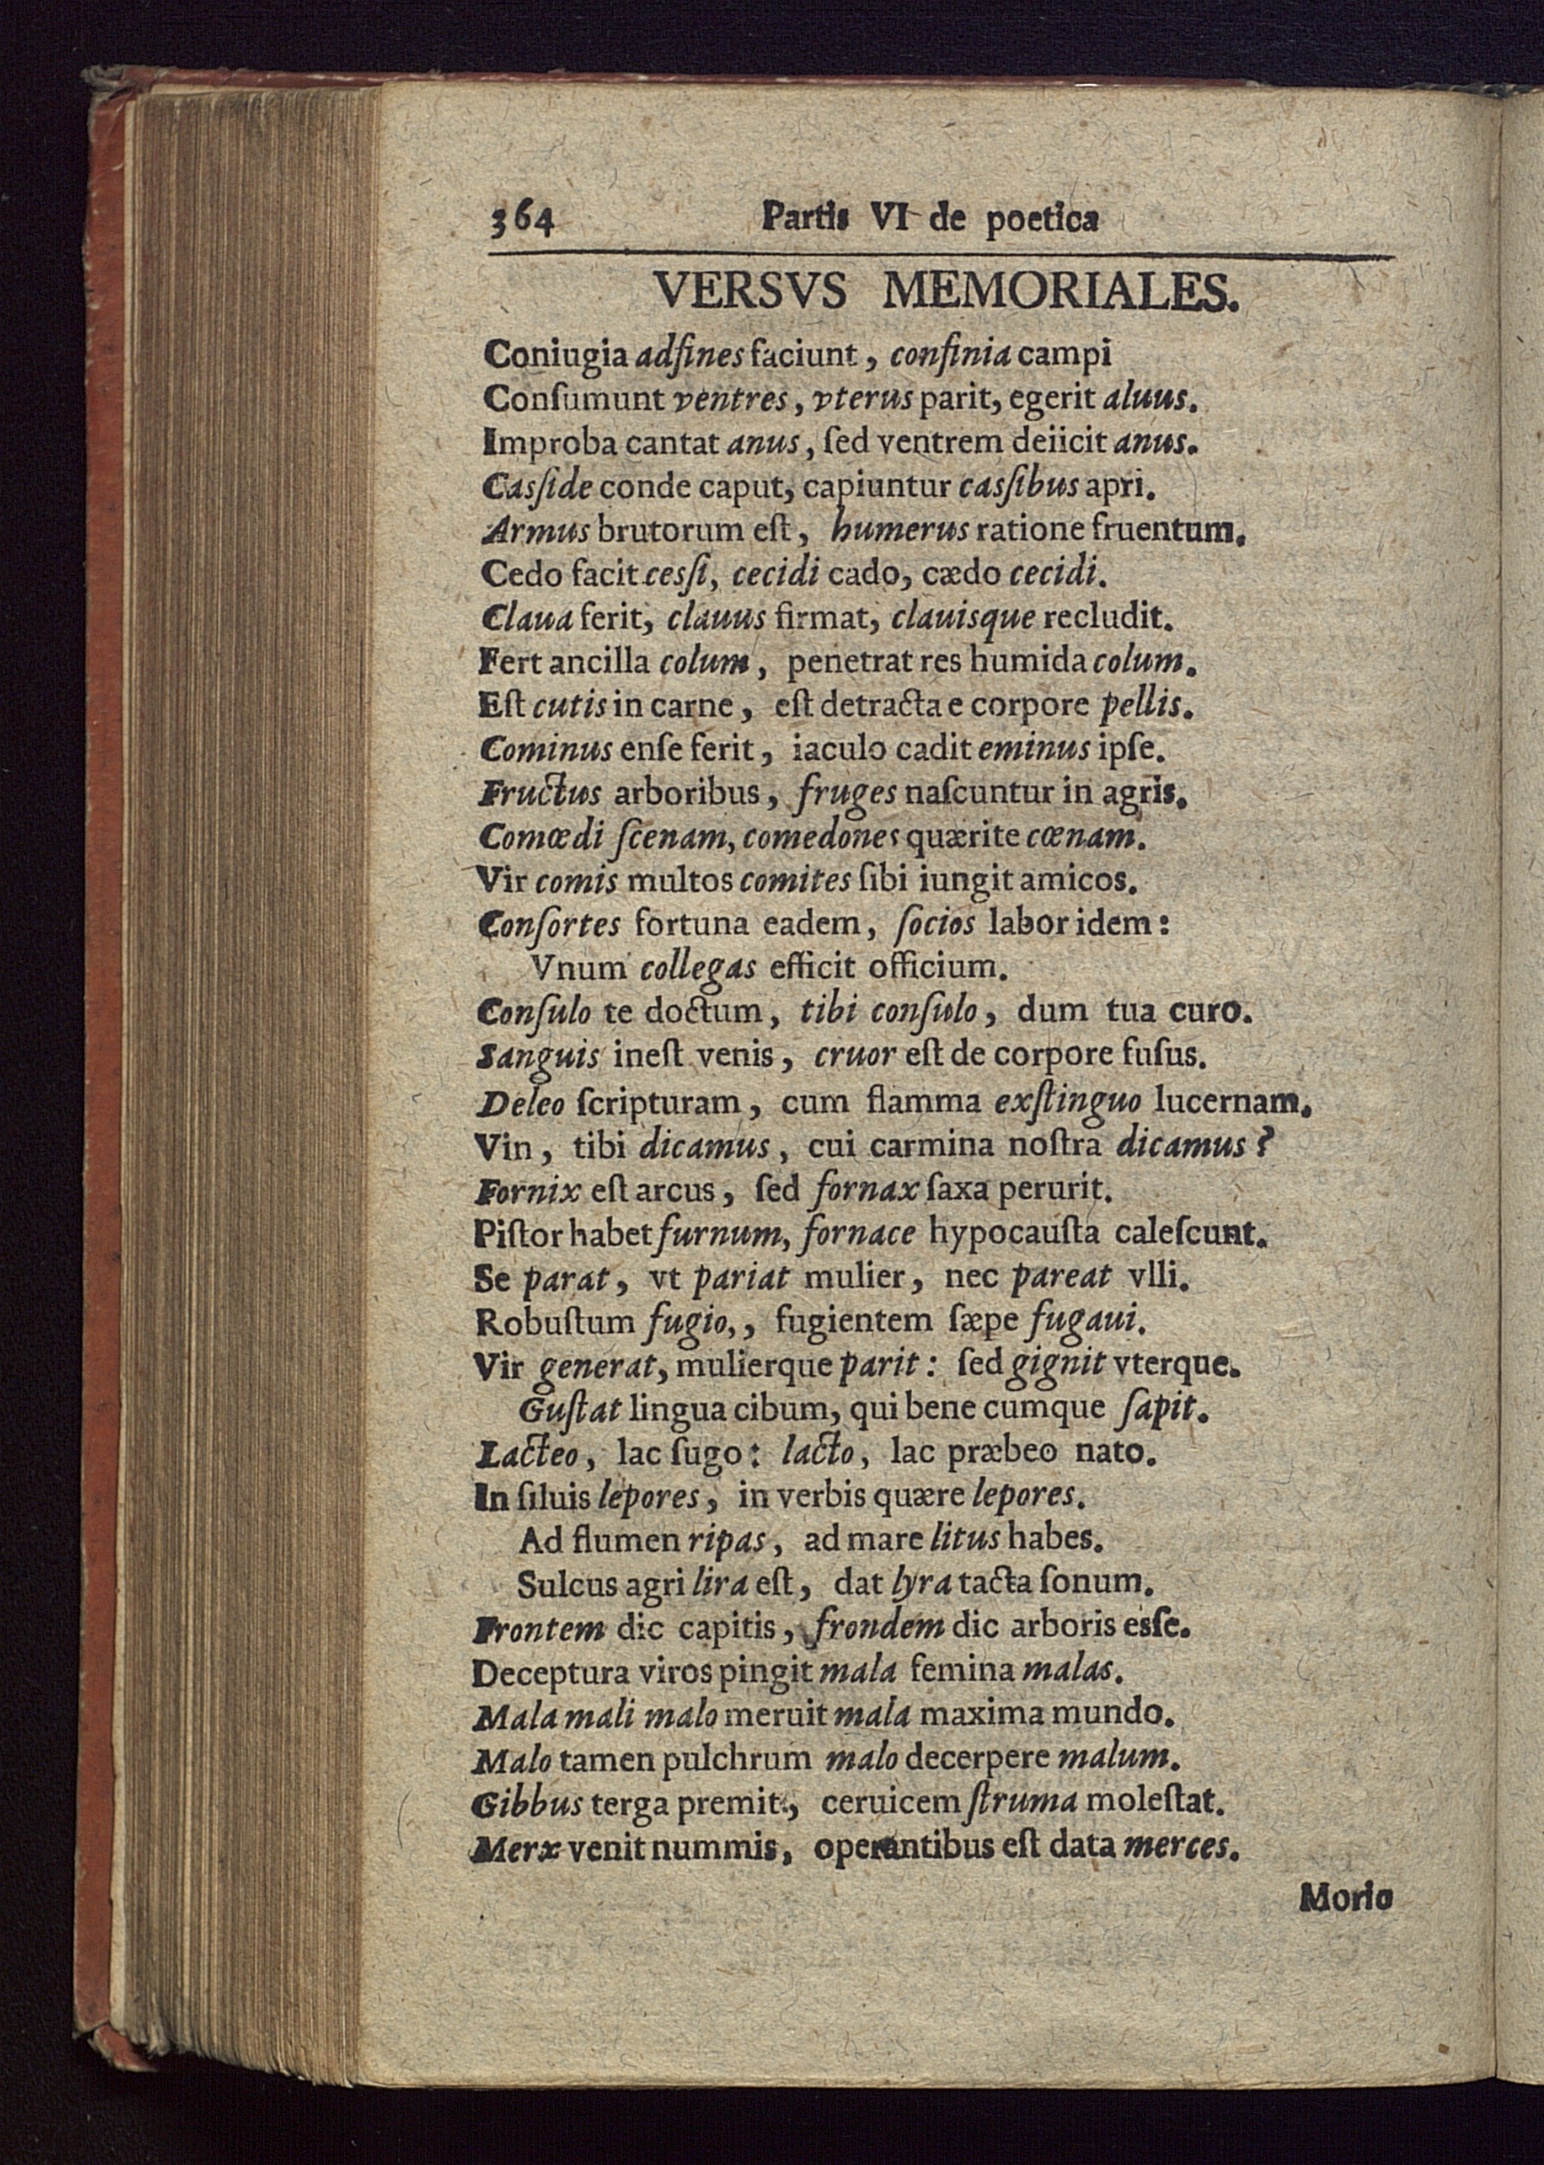 364 Partis VI de poetica
VERSVS MEMORIALES.
Coniugia adfines faciunt, confinia campi
Conſumunt ventres, vterus parit, egerit aluus.
Improba cantat anus, ſed ventrem deiicit anus.
Casſide conde caput, capiuntur casſibus apri.
Armus brutorum eſt, humerus ratione fruentum.
Cedo facit cesſi, cecidi cado, cædo cecidi.
Claua ferit, clauus firmat, clauisque recludit.
Fert ancilla colum, penetrat res humida colum.
Eſt cutis in carne, eſt detracta e corpore pellis.
Cominus enſe ferit, iaculo cadit eminus ipſe.
Fructus arboribus, fruges naſcuntur in agris.
Comœdi ſcenam, comedones quærite cœnam.
Vir comis multos comites ſibi iungit amicos.
Conſortes fortuna eadem, ſocios labor idem:
Vnum collegas efficit officium.
Conſulo te doctum, tibi conſulo, dum tua curo.
Sanguis ineſt venis, cruor eſt de corpore fuſus.
Deleo ſcripturam, cum flamma exſtinguo lucernam.
Vin, tibi dicamus, cui carmina noſtra dicamus?
Fornix eſt arcus, ſed fornax ſaxa perurit.
Piſtor habet furnum, fornace hypocauſta caleſcunt.
Se parat, vt pariat mulier, nec pareat vlli.
Robuſtum fugio,, fugientem ſæpe fugaui.
Vir generat, mulierque parit: ſed gignit vterque.
Guſtat lingua cibum, qui bene cumque ſapit.
Lacteo, lac ſugo: lacto, lac præbeo nato.
In ſiluis lepores, in verbis quære lepores.
Ad flumen ripas, ad mare litus habes.
Sulcus agri lira eſt, dat lyra tacta ſonum.
Frontem dic capitis, frondem dic arboris esſe.
Deceptura viros pingit mala femina malas.
Mala mali malo meruit mala maxima mundo.
Malo tamen pulchrum malo decerpere malum.
Gibbus terga premit, ceruicem ſtruma moleſtat.
Merx venit nummis, operantibus eſt data merces.
Morio